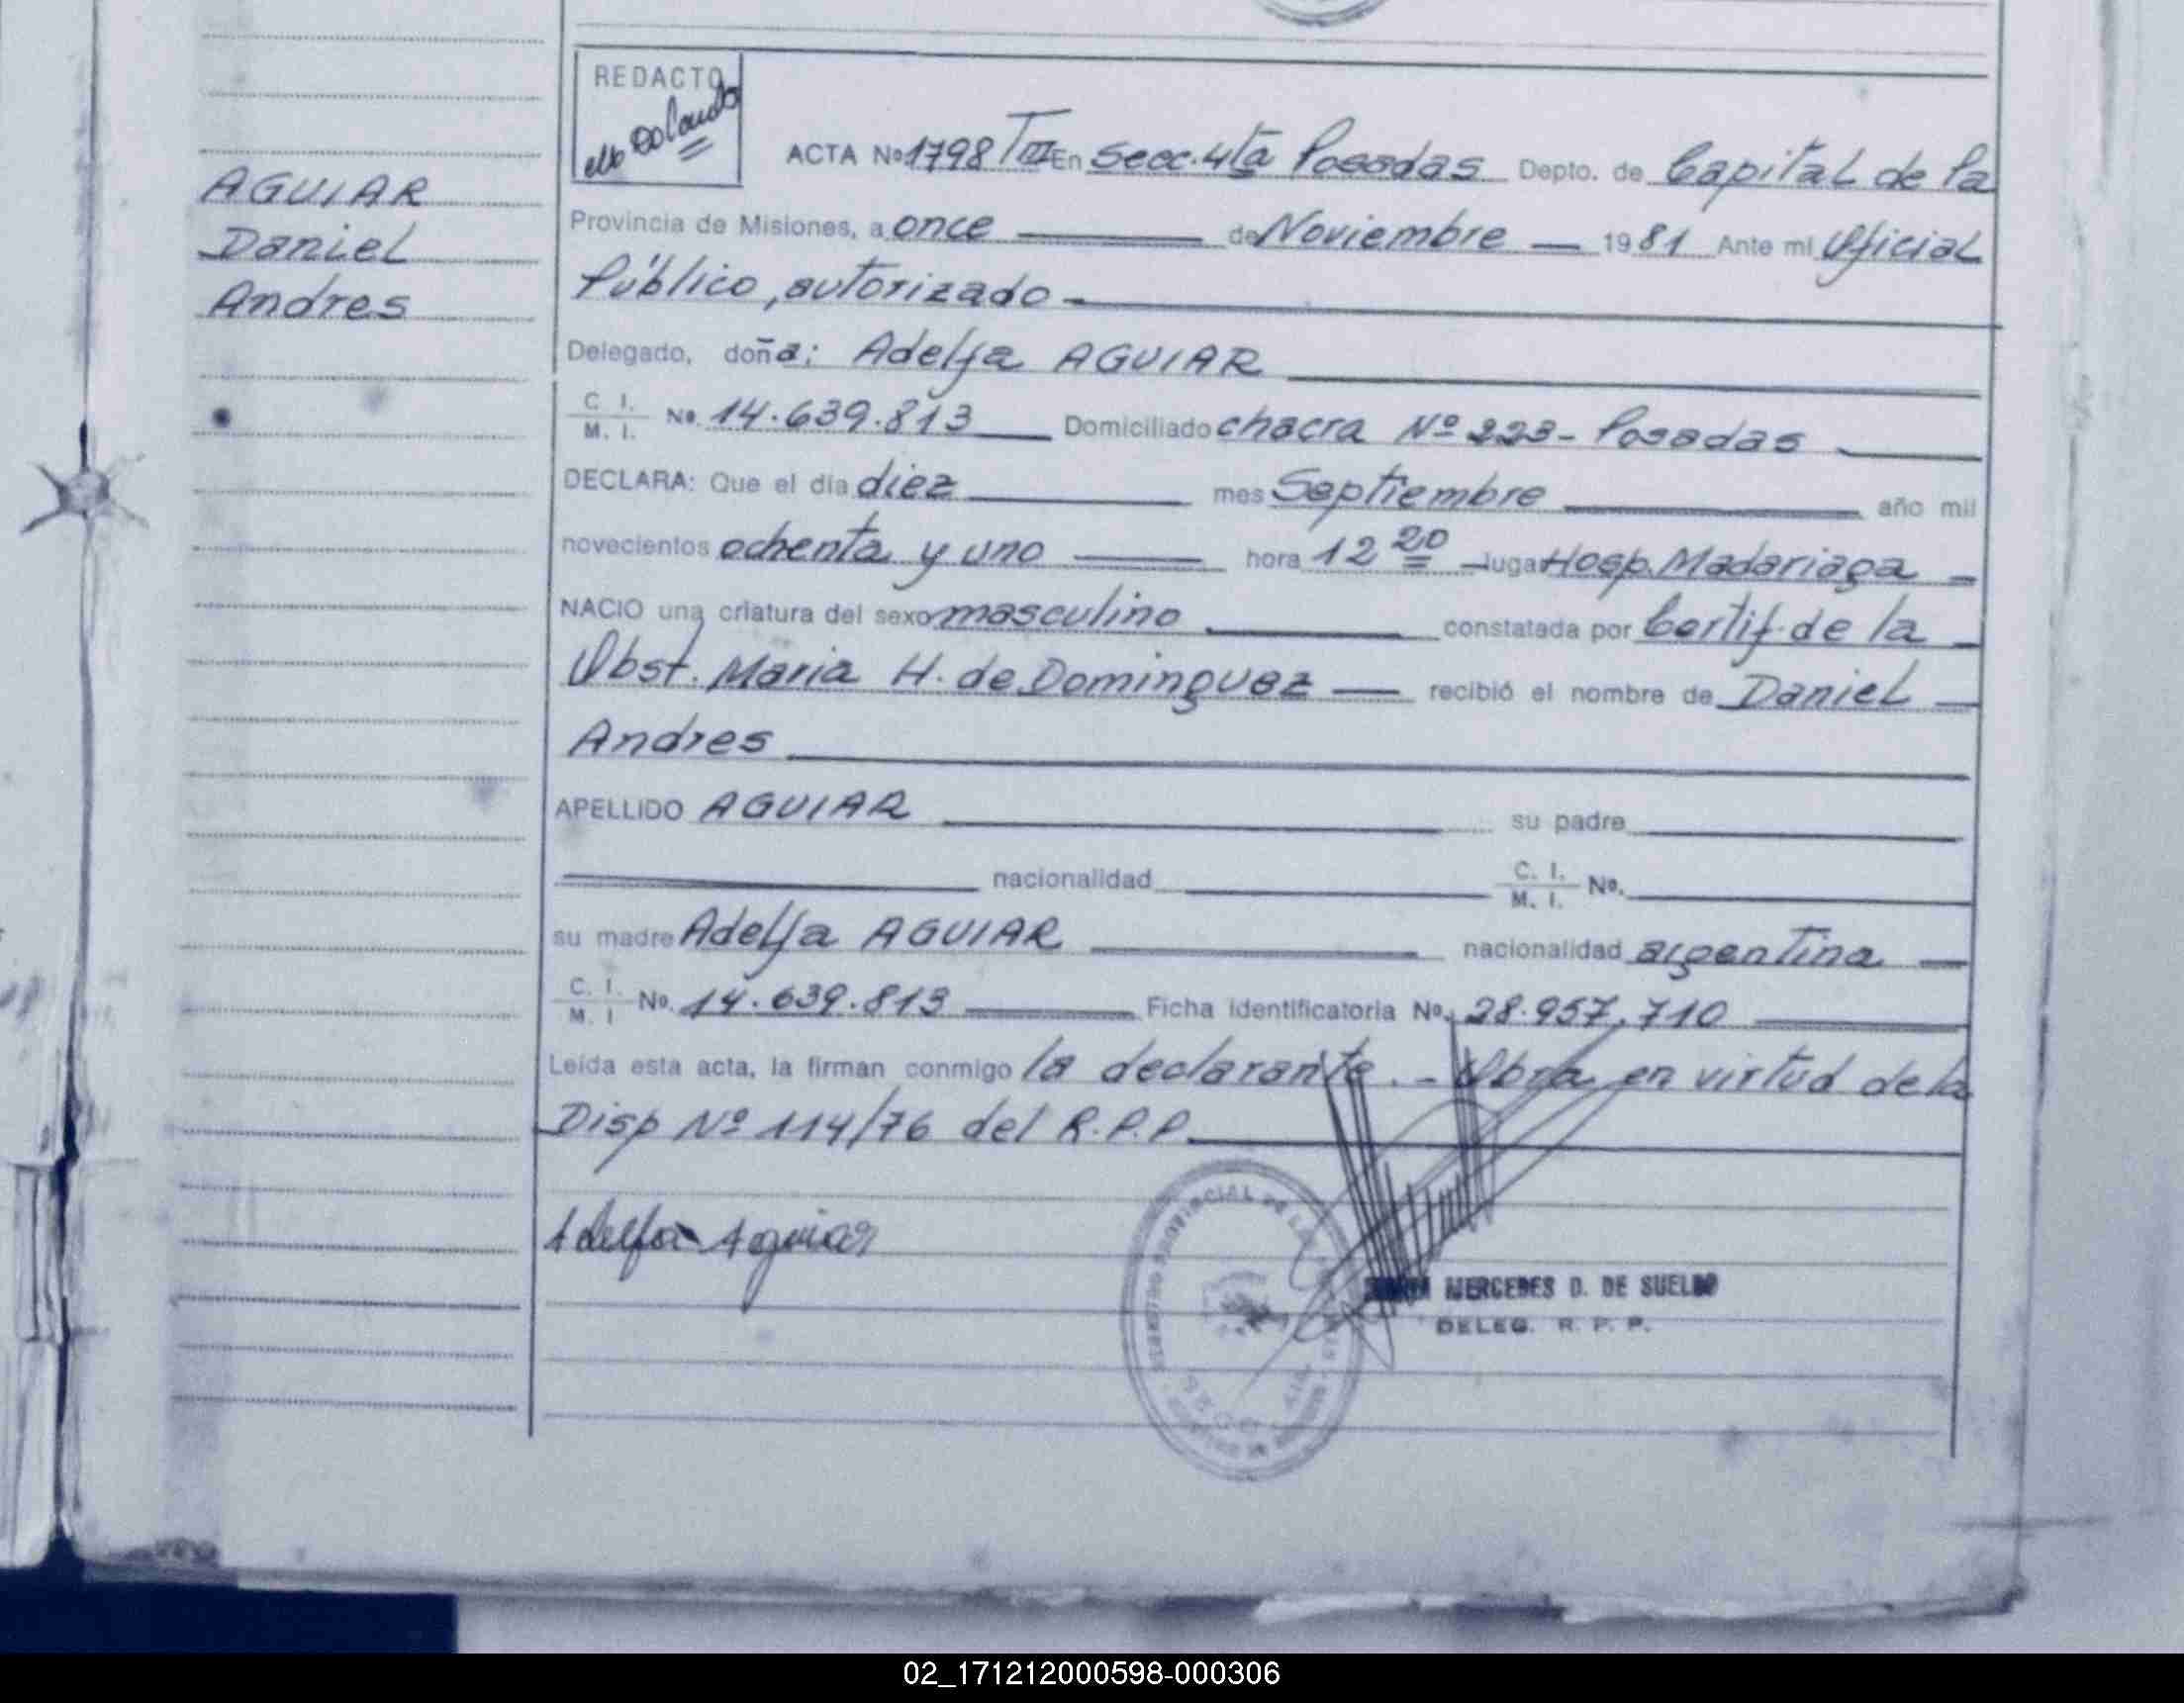 REDACTO
ACTA Nº 1798 TIII En Secc. 4ta Posadas Depto. de Capital de la
AGUIAR
Daniel
Andres
Provincia de Misiones, a once de Noviembre 1981 Ante mi Oficial
Público, autorizado
Delegado, doña: Adelfa AGUIAR
C. I. / M. I. Nº. 14.639.813 Domiciliado chacra Nº 223 - Posadas
DECLARA: Que el día diez mes Septiembre año mil
novecientos ochenta y uno hora 12 20 lugar Hosp. Madariaga
NACIO una criatura del sexo masculino constatada por Certif. de la
Obst. Maria H. de Dominguez recibió el nombre de Daniel
Andres
APELLIDO AGUIAR su padre
nacionalidad C. I. / M. I. Nº.
su madre Adelfa AGUIAR nacionalidad argentina
C. I. / M. I. Nº. 14.639.813 Ficha identificatoria Nº. 28.957.710
Leída esta acta, la firman conmigo la declarante. - Obra en virtud de la
Disp Nº 114/76 del R.P.P.
Adelfa Aguiar
MERCEDES D. DE SUELDO
DELEG. R. P. P.
02_171212000598-000306